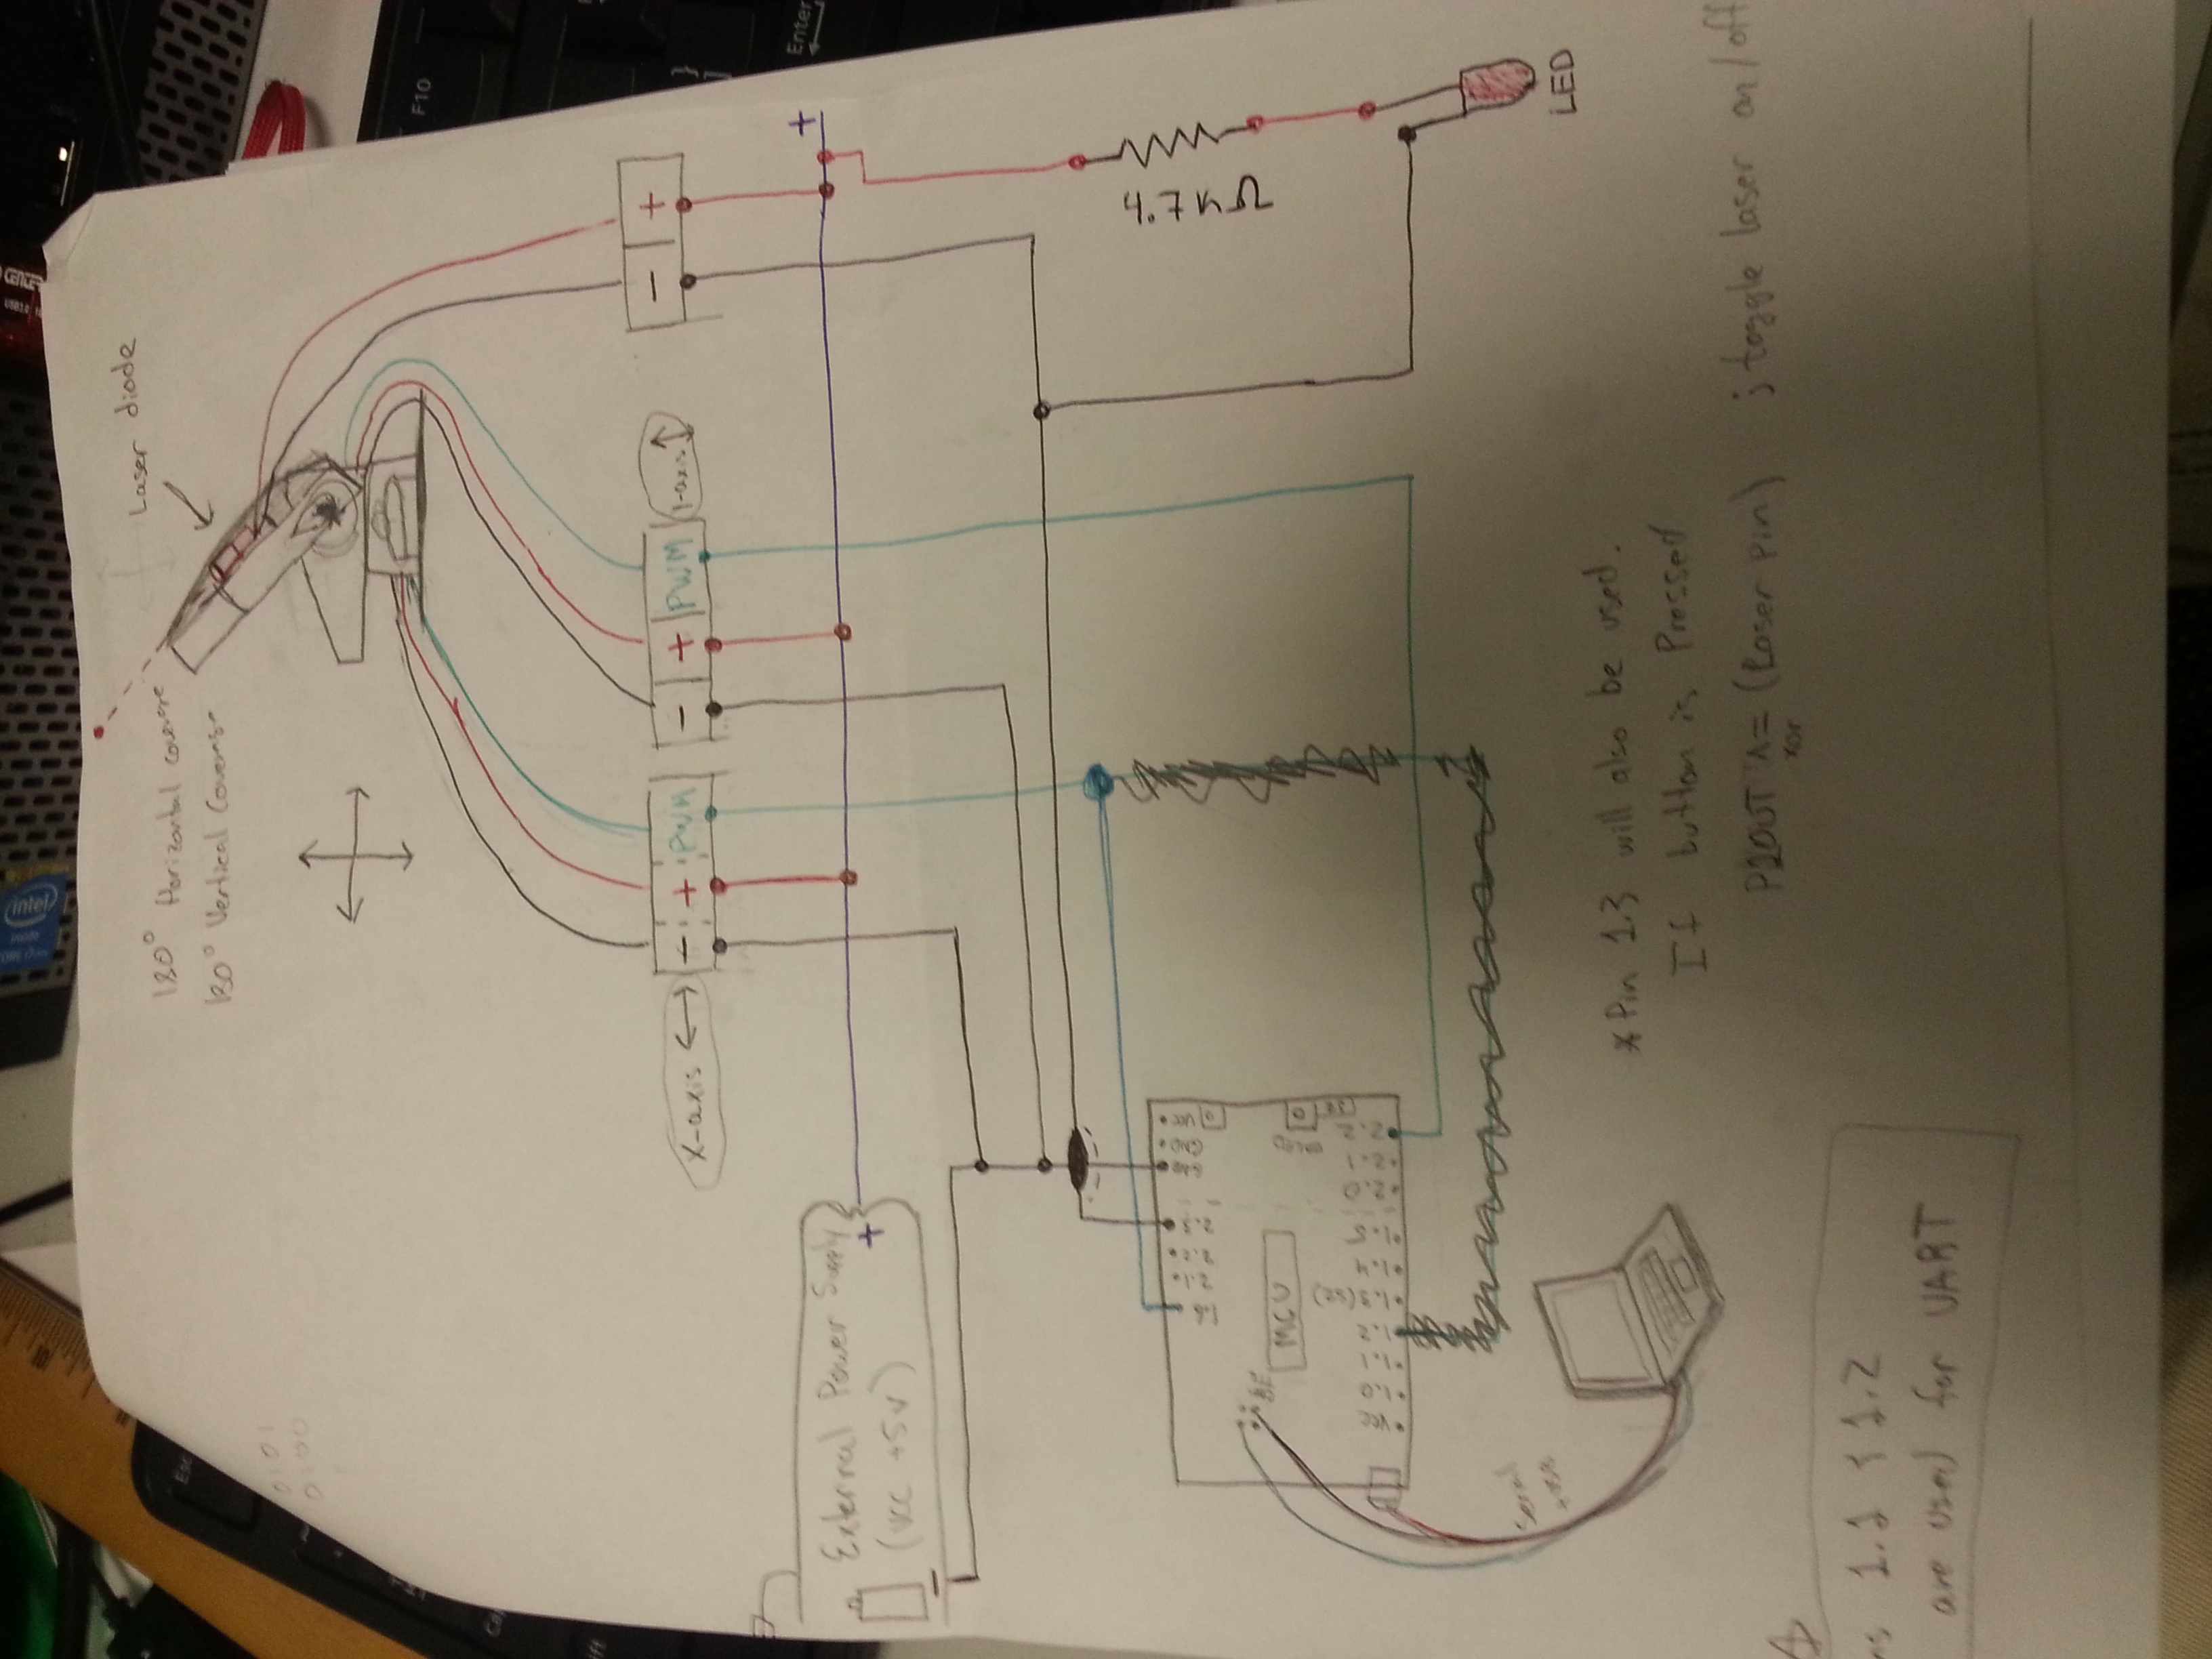 Laser diode
180° Horizontal coverage
180° Vertical Coverage
0101
0100
X-axis
- + PWM
- + PWM
Y-axis
- +
+
External Power Supply
(VCC +5V)
+
-
4.7KΩ
1.6
2.1
2.2
2.3
GND
GND
VCC
MCU
VCC
1.0
1.1
1.2
1.3 (S2)
1.4
1.5
2.0
2.1
2.2
Serial
+USB
LED
*Pin 1.3 will also be used.
If button is Pressed
P2OUT ^= (Laser pin) ; toggle laser on/off
xor
1.1 & 1.2
are used for UART
intel
Esc
F10
Enter